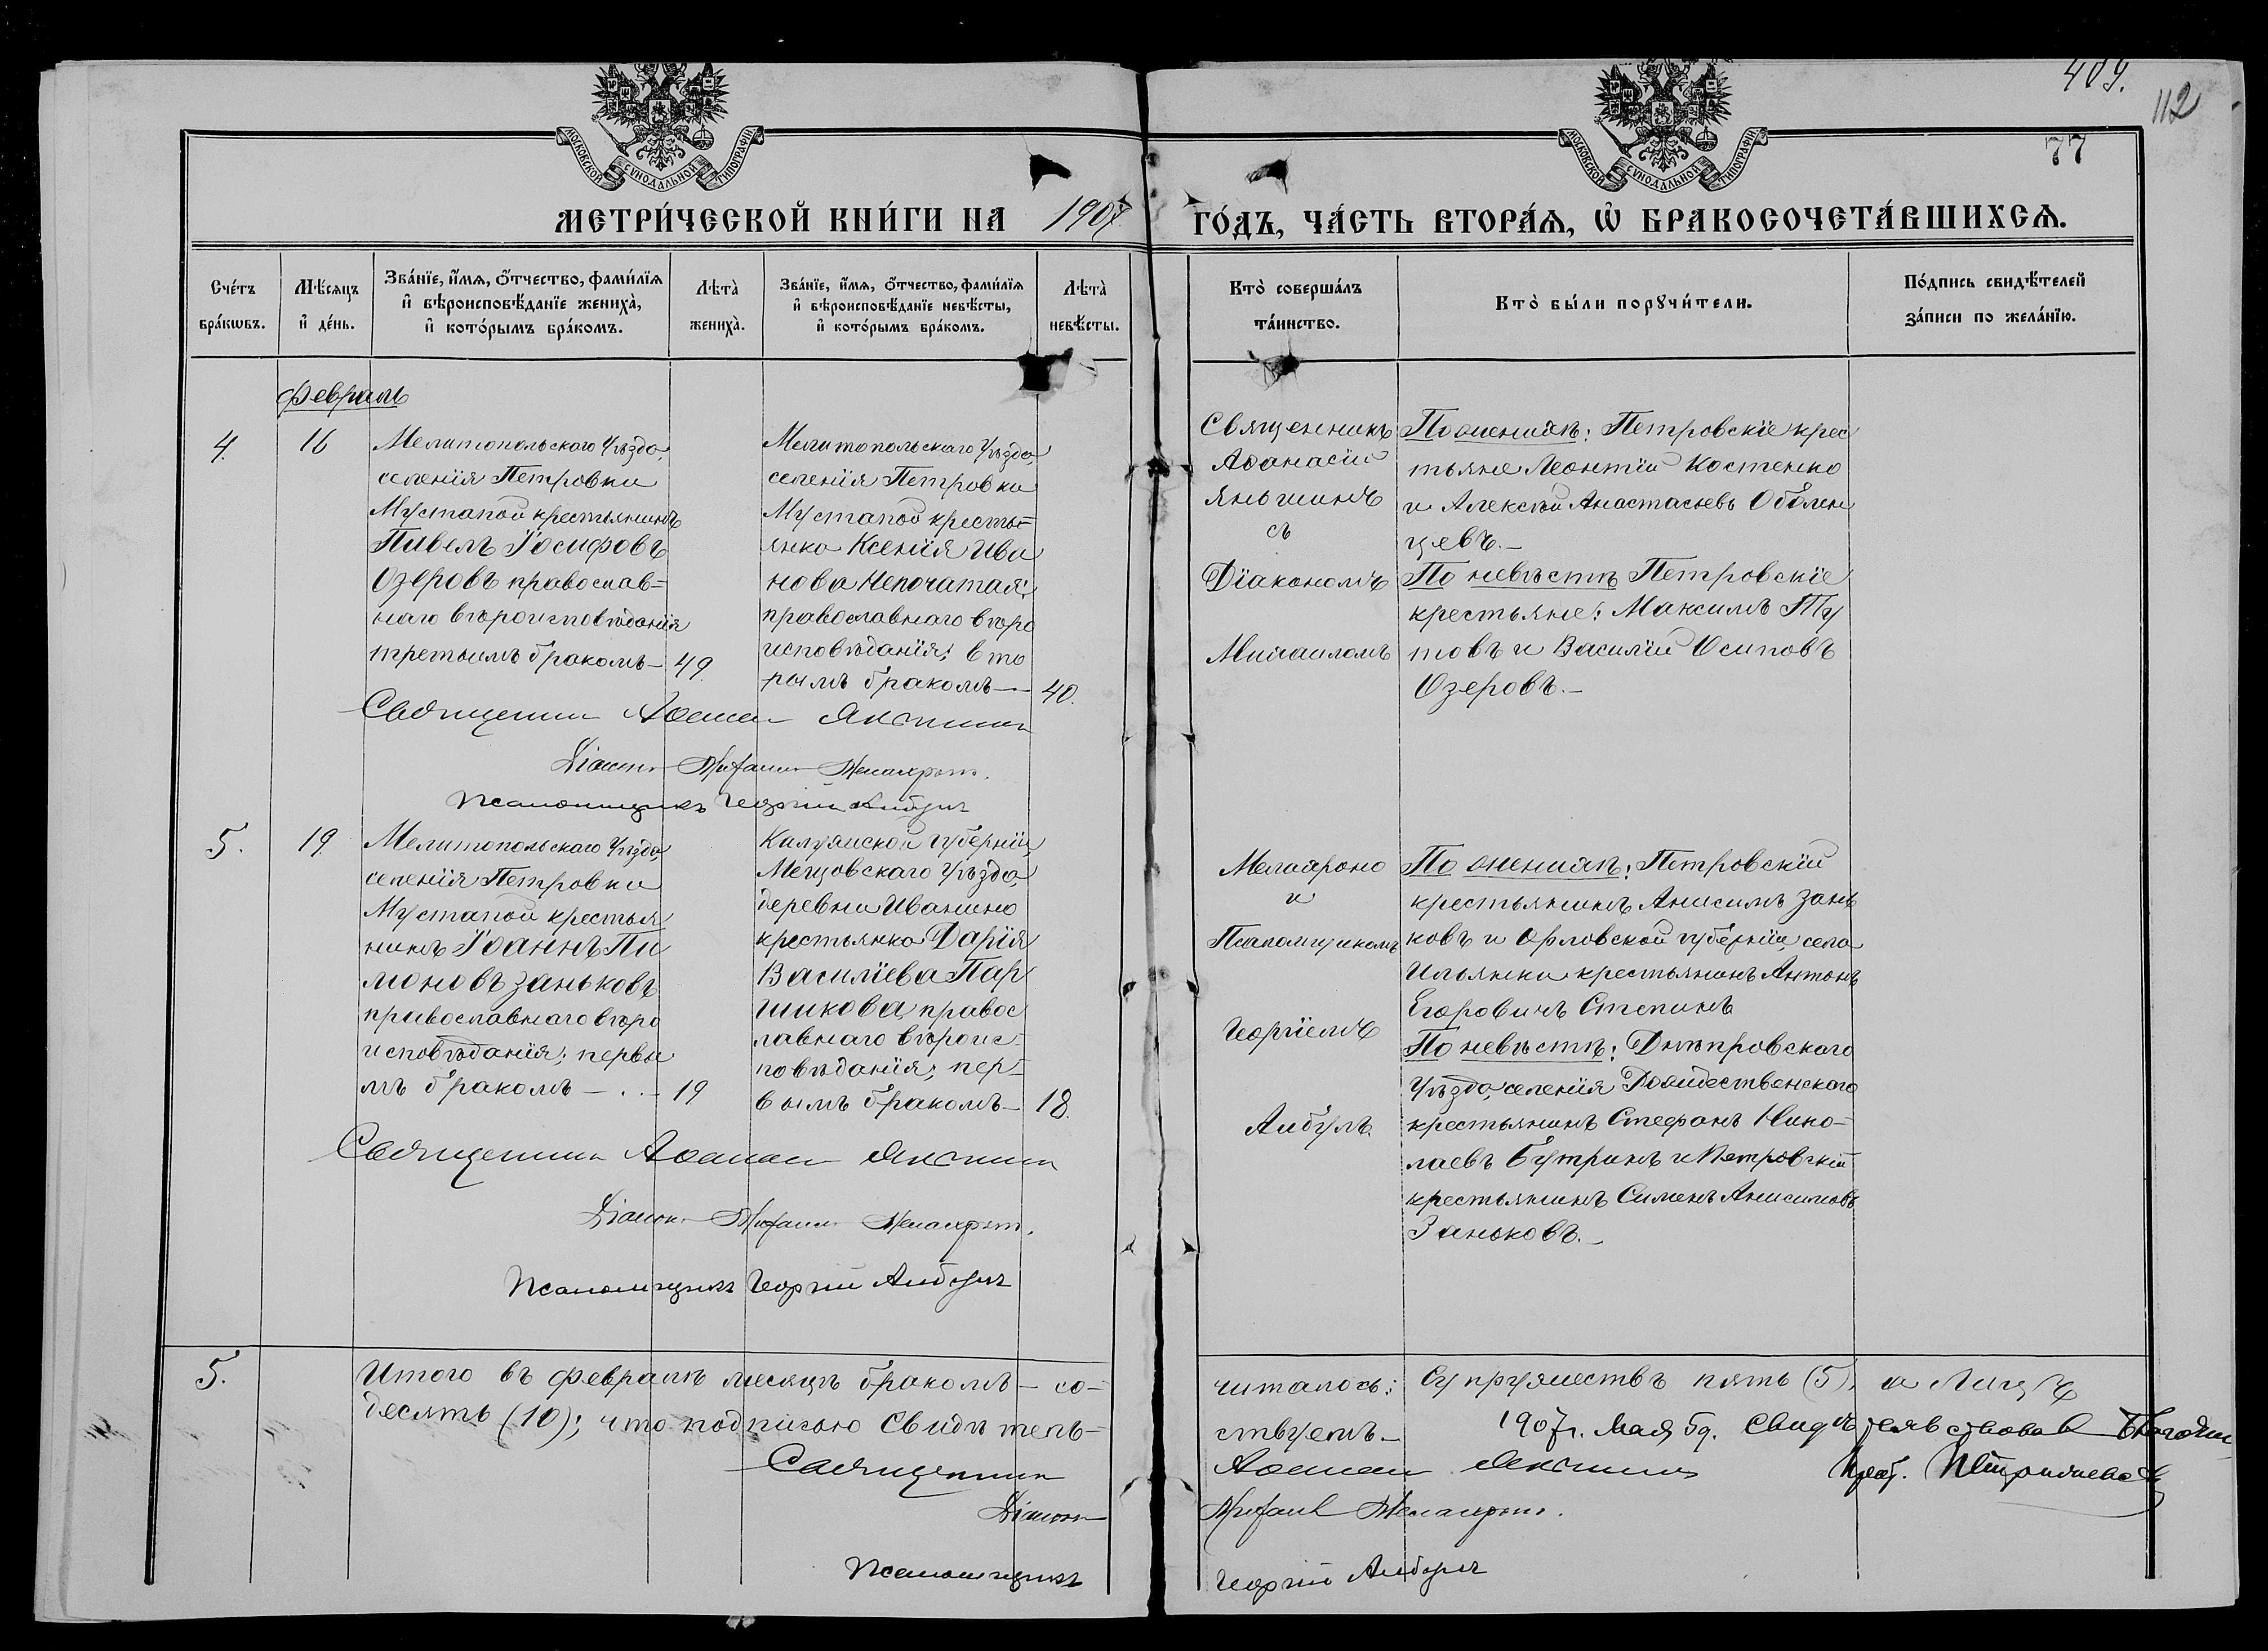 409.
112
77
МОСКОВСКОЙ СѴНОДАЛЬНОЙ ТИПОГРАФІИ
МОСКОВСКОЙ СѴНОДАЛЬНОЙ ТИПОГРАФІИ
МЕТРИ́ЧЕСКОЙ КНИ́ГИ НА 1907 ГО́ДЪ, ЧА́СТЬ ВТОРА́Ѧ, Ѿ БРАКОСОЧЕТА́ВШИХСѦ.
Сче́тъ
бра́кωвъ.
Мѣ́сяцъ
и҆ де́нь.
Зва́нїе, и҆́мѧ, ѻ҆́тчество, фами́лїѧ
и҆ вѣроисповѣ́данїе жениха̀,
и҆ кото́рымъ бра́комъ.
Лѣта̀
жениха̀.
Зва́нїе, и҆́мѧ, ѻ҆́тчество, фами́лїѧ
и҆ вѣроисповѣ́данїе невѣ́сты,
и҆ кото́рымъ бра́комъ.
Лѣта̀
невѣ́сты.
Кто̀ соверша́лъ
та́инство.
Кто̀ бы́ли порꙋчи́тели.
По́дпись свидѣ́телей
за́писи по жела́нїю.
Февраль
4.
16
Мелитопольскаго Уѣзда,
селенія Петровки
Мустапой крестьянинъ
Павелъ Іосифовъ
Озеровъ православ=
наго вѣроисповѣданія
третьимъ бракомъ — 49.
Мелитопольскаго Уѣзда,
селенія Петровки
Мустапой кресть=
янка Ксенія Ива
нова Непочатая;
православнаго вѣро
исповѣданія; вто
рымъ бракомъ — 40.
Священникъ
Аѳанасій
Яньшинъ
съ
Діакономъ
Михаиломъ
По женихѣ: Петровскіе крес
тьяне Леонтій Костенко
и Алексѣй Анастасьевъ Обѣлен
цевъ.—
По невѣстѣ Петровскіе
крестьяне: Максимъ Ту
товъ и Василій Осиповъ
Озеровъ.—
Священникъ Аѳанасій Яньшинъ
Діаконъ Михаилъ
Псаломщикъ Георгій Албулъ
5.
19
Мелитопольскаго Уѣзда
селенія Петровки
Мустапой крестья
нинъ Іоаннъ Пи
моновъ Заньковъ
православнаго вѣро
исповѣданія; первы
мъ бракомъ — . . — 19
Калужской губерніи,
Мещовскаго Уѣзда,
деревни Иванино
крестьянка Дарія
Василіева Пар
шикова, правос
лавнаго вѣроис=
повѣданія; пер=
вымъ бракомъ — 18.
и
Псаломщикомъ
Георгіемъ
Албулъ.
По женихѣ: Петровскій
крестьянинъ Анисимъ Зань
ковъ и Орловской губерніи, села
Ильинки крестьянинъ Антонъ
Егоровичъ Степинъ
По невѣстѣ: Днѣпровскаго
Уѣзда, селенія Рождественскаго
крестьянинъ Стефанъ Нико=
лаевъ Бутринъ и Петровскій
крестьянинъ Сименъ Анисимовъ
Заньковъ.—
Священникъ Аѳанасій Яньшинъ
Діаконъ Михаилъ
Псаломщикъ Георгій Албулъ
5.
Итого въ февралѣ месяцѣ бракомъ — со= читалось: Супружествъ пять (5), а Лицъ
десять (10); что подписью Свидѣтель= ствуемъ — 1907г. Мая 59. Свидѣтельствовалъ
Священникъ Аѳанасій Яньшинъ
Діаконъ Михаилъ
Псаломщикъ Георгій Албулъ